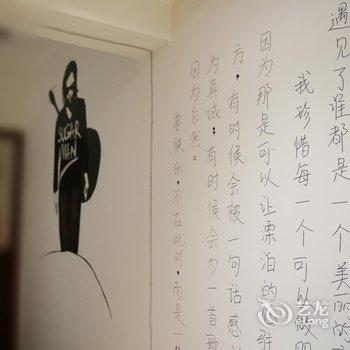 遇见了谁都是一个美丽的
我珍惜每一个可以做
因为那是可以让漂泊的
方，有时候会被一句话感
为真诚；有时候会为一首歌
因为自然。
要快乐，不在此时，而是一
SUGAR
MAN
艺龙
eLong